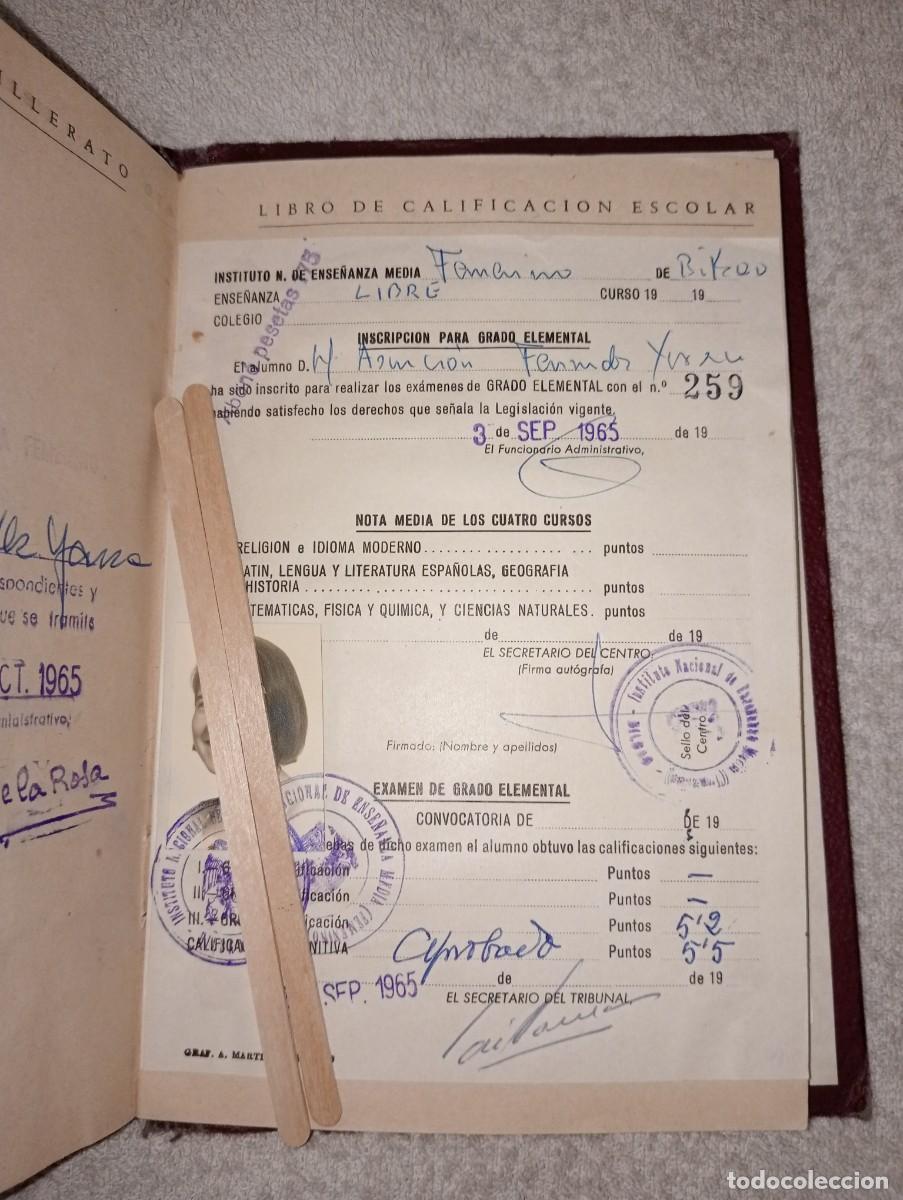 ILLERATO
spondientes y
ue se tramite
CT. 1965
e la Rosa
LIBRO DE CALIFICACION ESCOLAR
INSTITUTO N. DE ENSEÑANZA MEDIA Femenino DE Bilbao
ENSEÑANZA LIBRE CURSO 19 19
COLEGIO
Abona pesetas 75
INSCRIPCION PARA GRADO ELEMENTAL
El alumno D. Mª Asunción
ha sido inscrito para realizar los exámenes de GRADO ELEMENTAL con el n.º 259
habiendo satisfecho los derechos que señala la Legislación vigente.
3 de SEP. 1965 de 19
El Funcionario Administrativo,
NOTA MEDIA DE LOS CUATRO CURSOS
RELIGION e IDIOMA MODERNO puntos
ATIN, LENGUA Y LITERATURA ESPAÑOLAS, GEOGRAFIA
HISTORIA puntos
TEMATICAS, FISICA Y QUIMICA, Y CIENCIAS NATURALES. puntos
de de 19
EL SECRETARIO DEL CENTRO,
(Firma autógrafa)
Instituto Nacional de Enseñanza Media
Sello del
Centro
Firmado: (Nombre y apellidos)
EXAMEN DE GRADO ELEMENTAL
CONVOCATORIA DE DE 19
bas de dicho examen el alumno obtuvo las calificaciones siguientes:
ificación Puntos —
icación Puntos —
III.- GR cación Puntos 5'2
CALIFICA NITIVA Aprobado Puntos 5'5
INSTITUTO NACIONAL DE ENSEÑANZA MEDIA
SEP. 1965 de de 19
EL SECRETARIO DEL TRIBUNAL,
GRAF. A. MARTI
todocoleccion